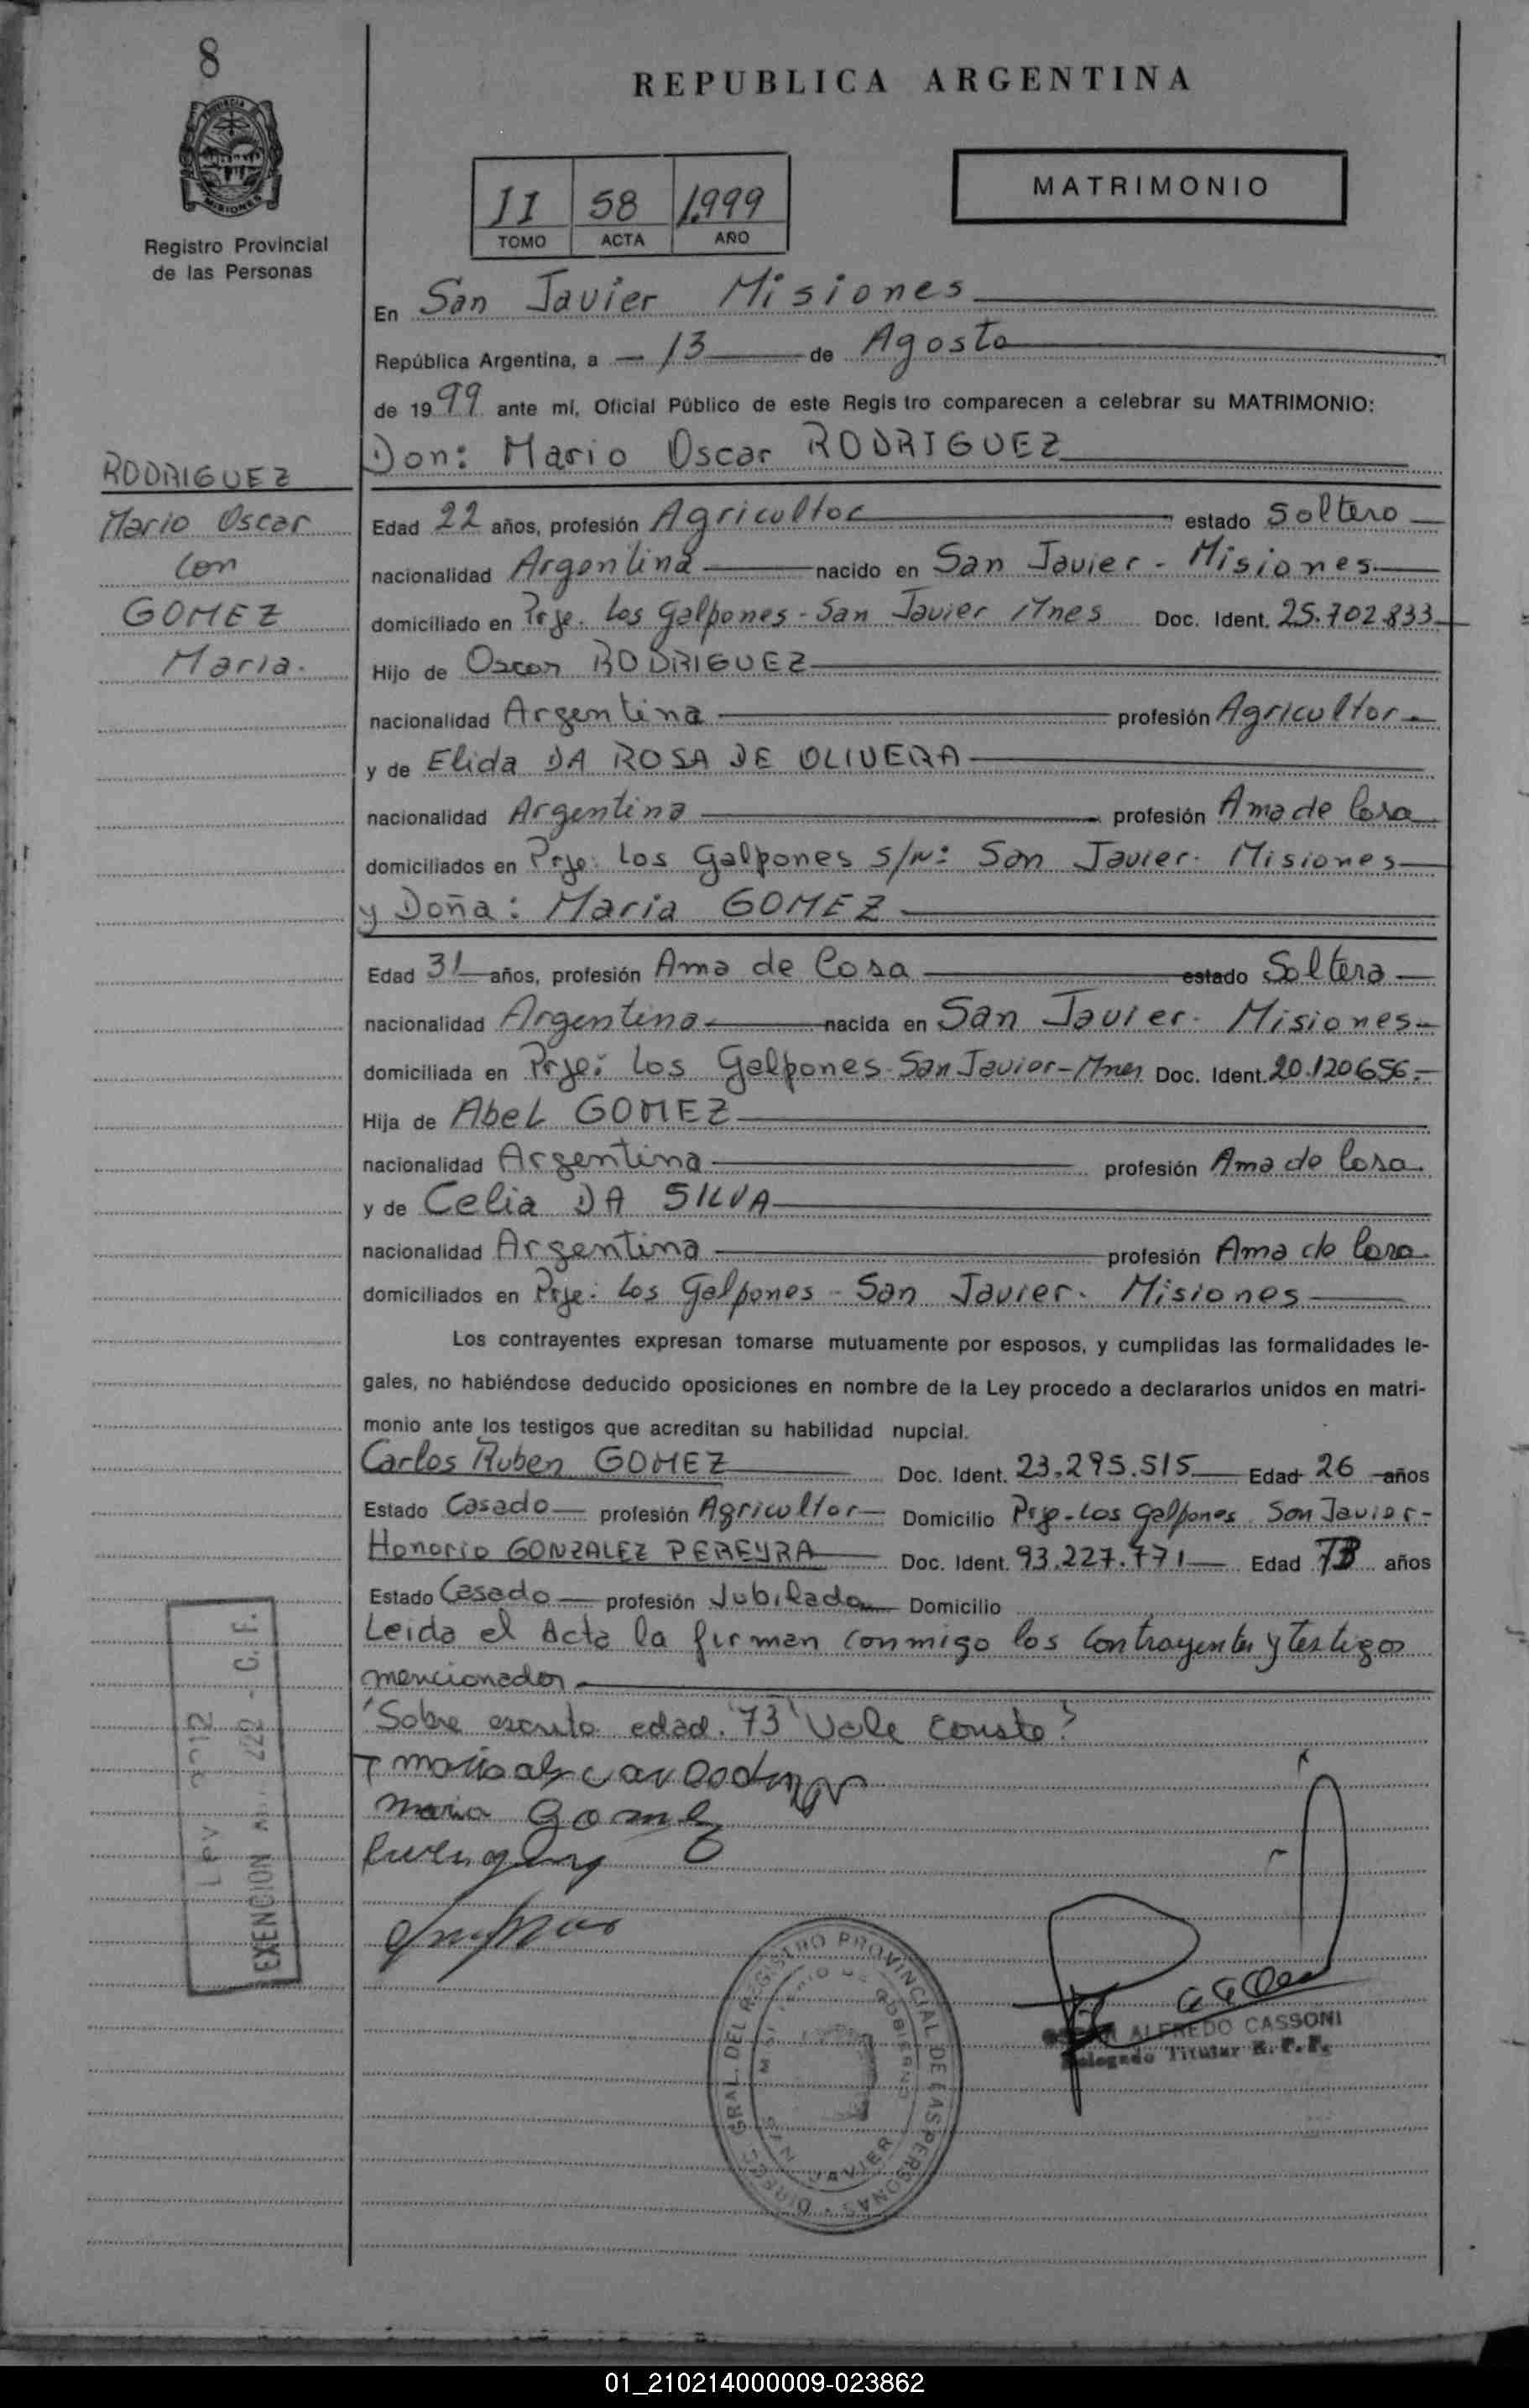 8
REPUBLICA ARGENTINA
PROVINCIA DE
MISIONES
Registro Provincial
de las Personas
II 58 1.999
TOMO ACTA AÑO
MATRIMONIO
En San Javier Misiones
República Argentina, a 13 de Agosto
de 1999 ante mí, Oficial Público de este Registro comparecen a celebrar su MATRIMONIO:
Don: Mario Oscar RODRIGUEZ
RODRIGUEZ
Mario Oscar
con
GOMEZ
Maria.
Edad 22 años, profesión Agricultor estado Soltero
nacionalidad Argentina nacido en San Javier - Misiones
domiciliado en Prje. Los Galpones - San Javier Mnes Doc. Ident. 25.702.833
Hijo de Oscar RODRIGUEZ
nacionalidad Argentina profesión Agricultor
y de Elida DA ROSA DE OLIVERA
nacionalidad Argentina profesión Ama de Casa
domiciliados en Prje: Los Galpones S/Nº San Javier. Misiones
y Doña: Maria GOMEZ
Edad 31 años, profesión Ama de Casa estado Soltera
nacionalidad Argentina nacida en San Javier. Misiones
domiciliada en Prje: Los Galpones San Javier - Mnes Doc. Ident. 20.120656
Hija de Abel GOMEZ
nacionalidad Argentina profesión Ama de Casa
y de Celia DA SILVA
nacionalidad Argentina profesión Ama de Casa
domiciliados en Prje: Los Galpones - San Javier. Misiones
Los contrayentes expresan tomarse mutuamente por esposos, y cumplidas las formalidades le-
gales, no habiéndose deducido oposiciones en nombre de la Ley procedo a declararlos unidos en matri-
monio ante los testigos que acreditan su habilidad nupcial.
Carlos Ruben GOMEZ Doc. Ident. 23.295.515 Edad 26 años
Estado Casado profesión Agricultor Domicilio Prje. Los Galpones San Javier
Honorio GONZALEZ PEREYRA Doc. Ident. 93.227.771 Edad 73 años
Estado Casado profesión Jubilado Domicilio
Leida el Acta la firman conmigo los contrayentes y testigos
mencionados
"Sobre escrito edad. "73" Vale conste"
Maria Gomez
LEY
EXENCION 222 - G.F.
DIREC. GRAL. DEL REGISTRO PROVINCIAL DE LAS PERSONAS
SAN JAVIER
ALFREDO CASSONI
Delegado Titular R.P.P.
01_210214000009-023862